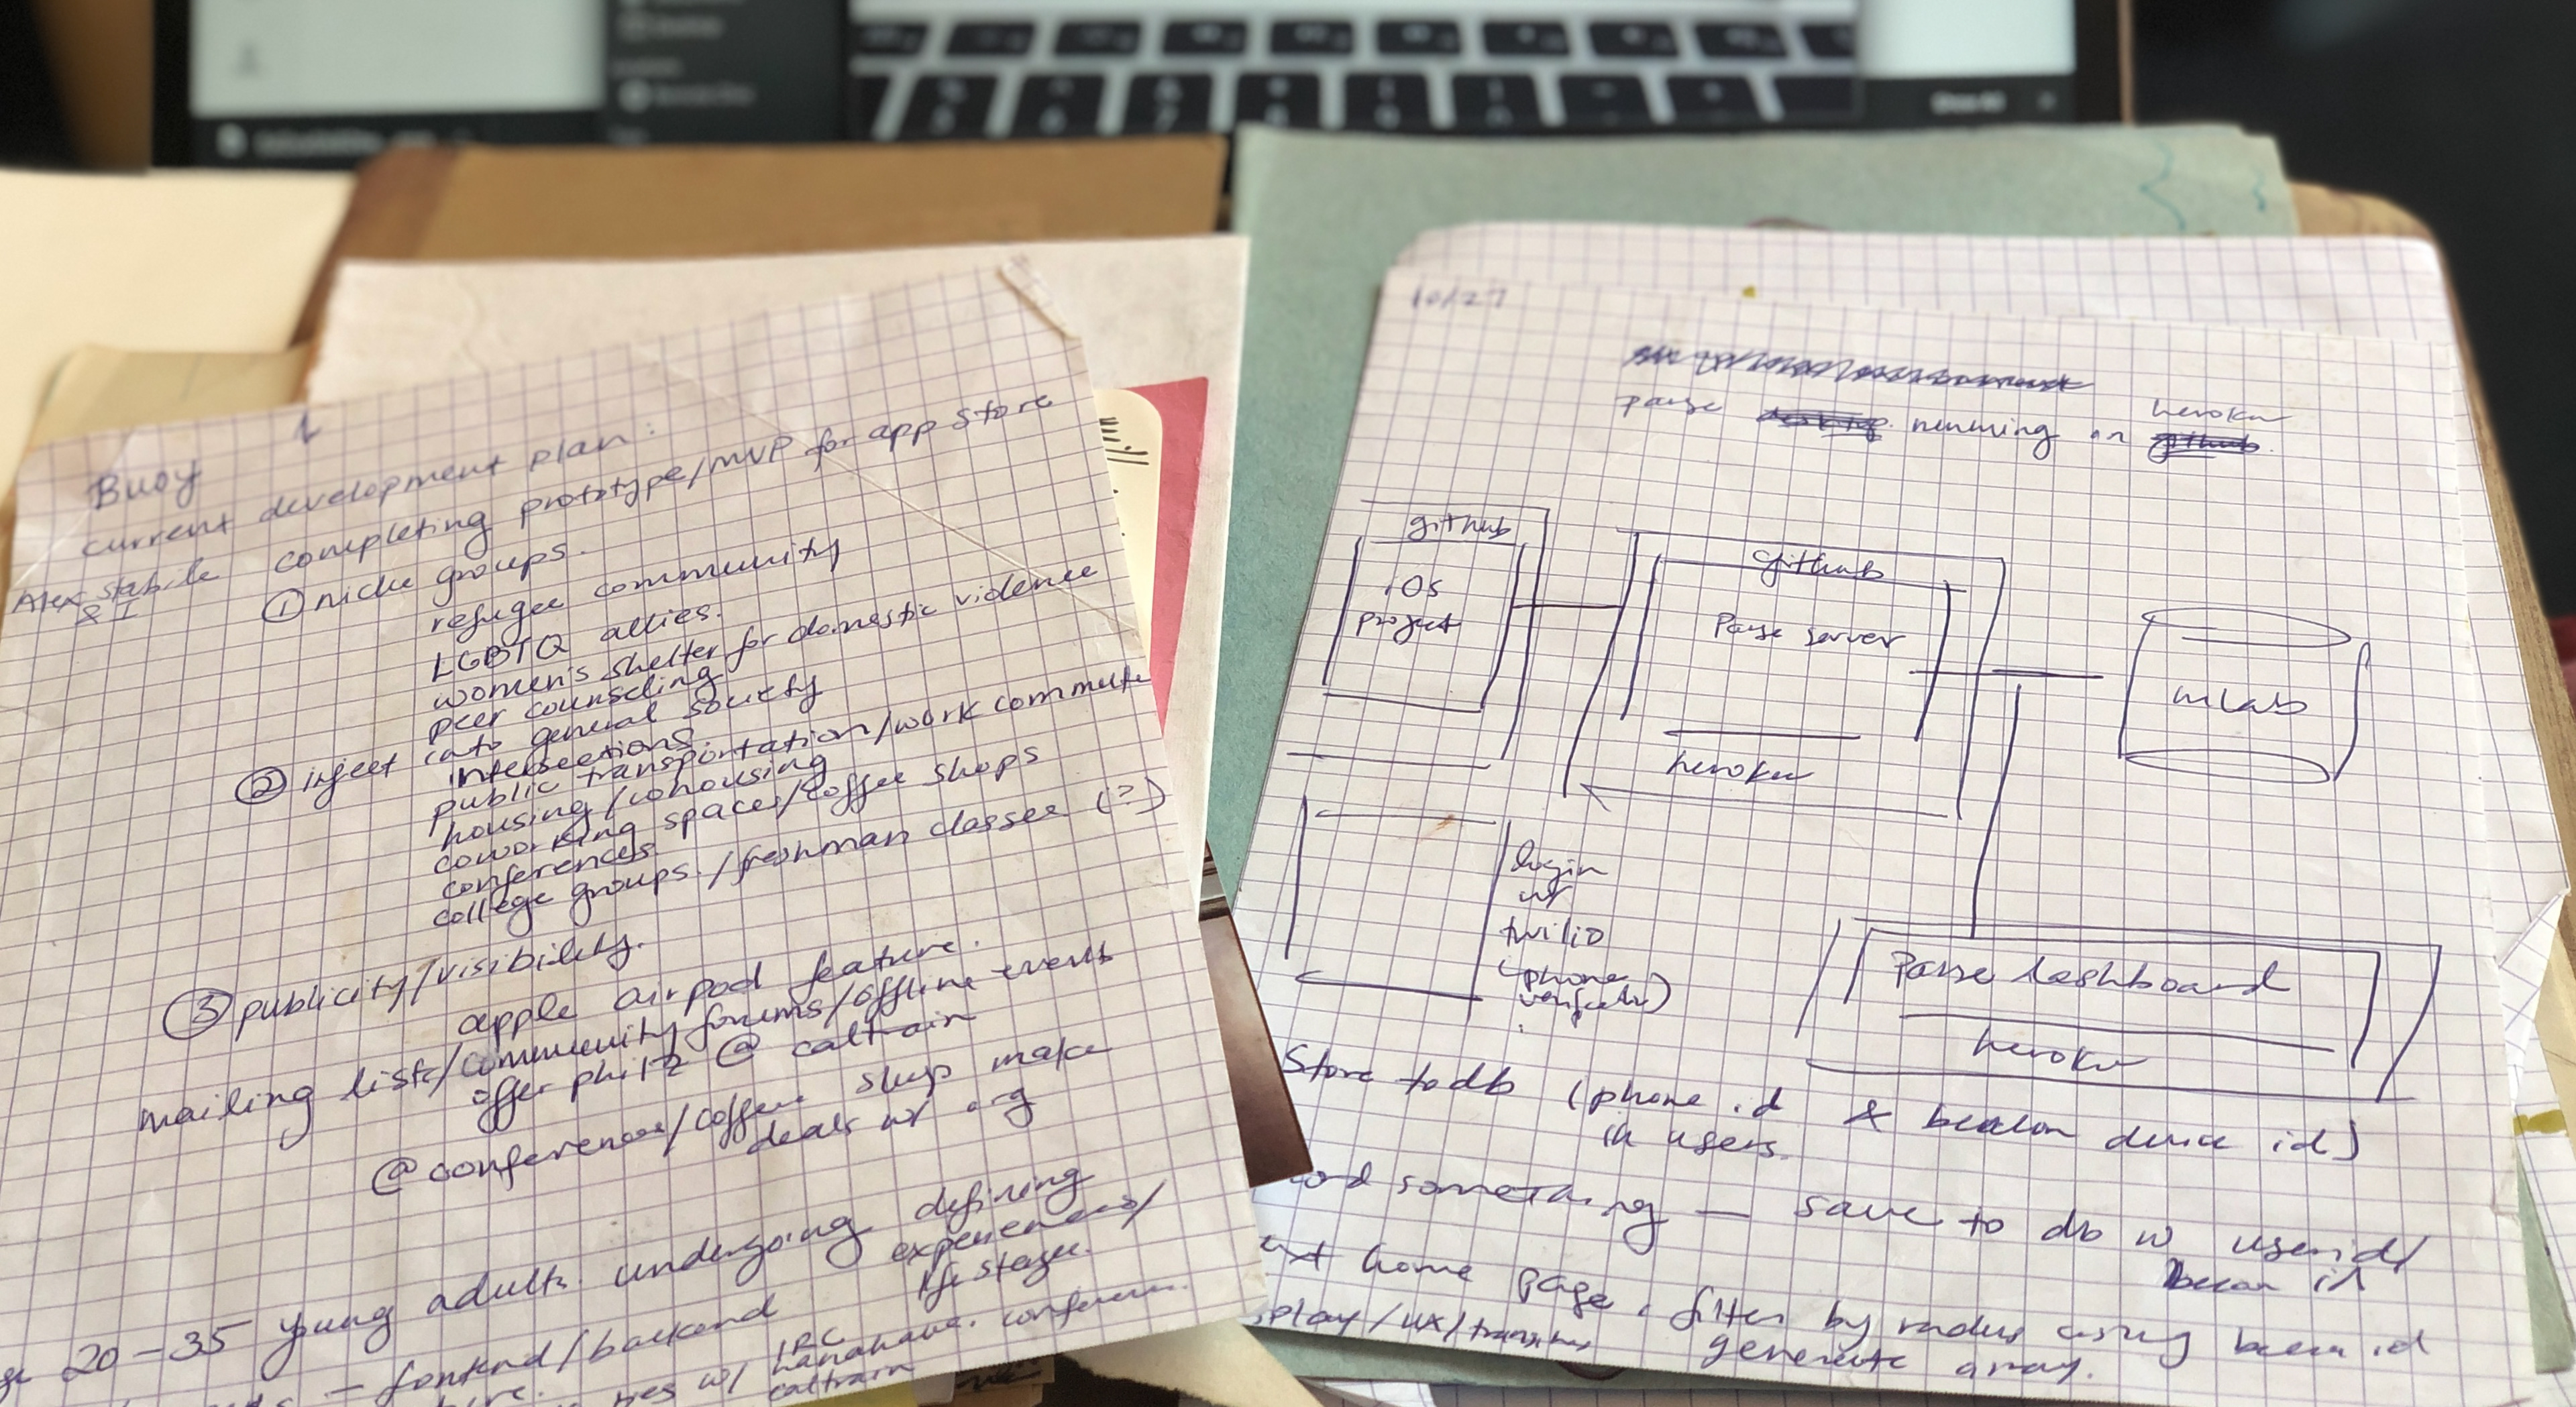 Buoy
current development plan:
Alex Stabile & I
completing prototype/MVP for app store
① niche groups.
refugee community
LGBTQ allies.
women's shelter for domestic violence
peer counseling
② inject into general society
intersections.
public transportation/work commute
housing/cohousing
coworking spaces/coffee shops
conferences
college groups./freshman classes (?)
③ publicity/visibility.
apple airpod feature.
mailing lists/community forums/offline events
offer philz @ caltrain
@conferences/coffee shop make
deals w/ org
20-35 young adults undergoing defining
experiences/
life stages.
frontend/backend
IRC
w/ conference
caltrain
10/27
parse running on heroku
github
github
iOS
project
github
Parse server
heroku
mLab
login
w/
twilio
(phone
Parse dashboard
heroku
Store to db (phone id & beacon device id)
in users.
something — save to db w userid/
home page. filter by radius using
generate array.